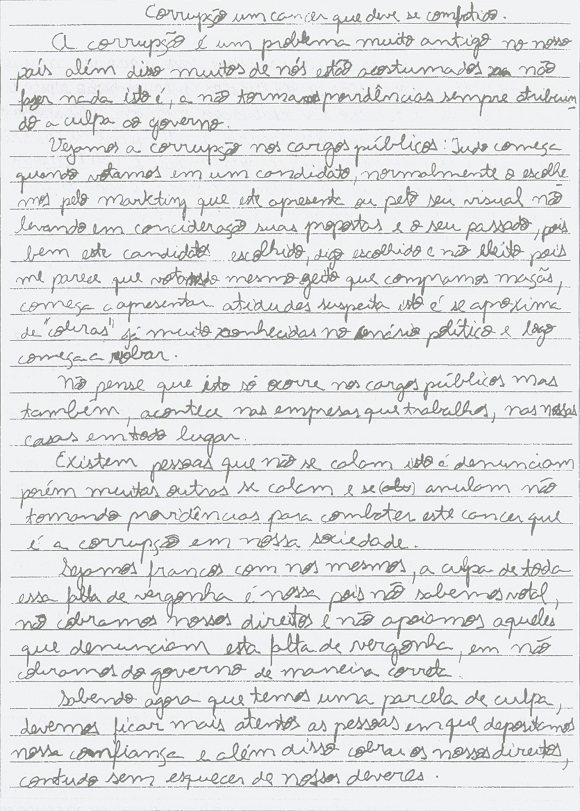 Corrupção um cancer que deve se combatido.
A corrupção é um problema muito antigo no nosso
país além diso muitos de nós estão acostumados não
fazer nada isto é, a não tormamos providências sempre atribuin
do a culpa ao governo.
Vejamos a corrupção nos cargos públicos: Tudo começa
quando votamos em um candidato, normalmente o escolhe
mos pelo markting que este apresenta ou pelo seu visual não
levando em concideração suas propostas e o seu passado, pois
bem este candidato escolhido, digo escolhido e não eleito pois
me parece que votamos do mesmo geito que compramos maçãs,
começa a apresentar atidudes suspeita isto é se aproxima
de "cobras" já muito conhecidas no cenário político e logo
começa a robar.
Não pense que isto só ocorre nos cargos públicos mas
também, acontece nas empresas que trabalhos, nas nossas
casas em todo lugar.
Existem pessoas que não se calam isto é denunciam
porém muitas outras se calam e se anulam não
tomando providências para combater este cancer que
é a corrupção em nossa sociedade.
Sejamos francos com nos mesmos, a culpa de toda
essa falta de vergonha é nossa pois não sabemos votal,
não cobramos nossos direitos e não apoiamos aqueles
que denunciam esta falta de vergonha, em não
cobramos do governo de maneira correta.
Sabendo agora que temos uma parcela de culpa,
devemos ficar mais atentos as pessoas em que depositamos
nossa comfiança e além disso cobrar os nossos direitos,
contudo sem esquecer de nossos deveres.